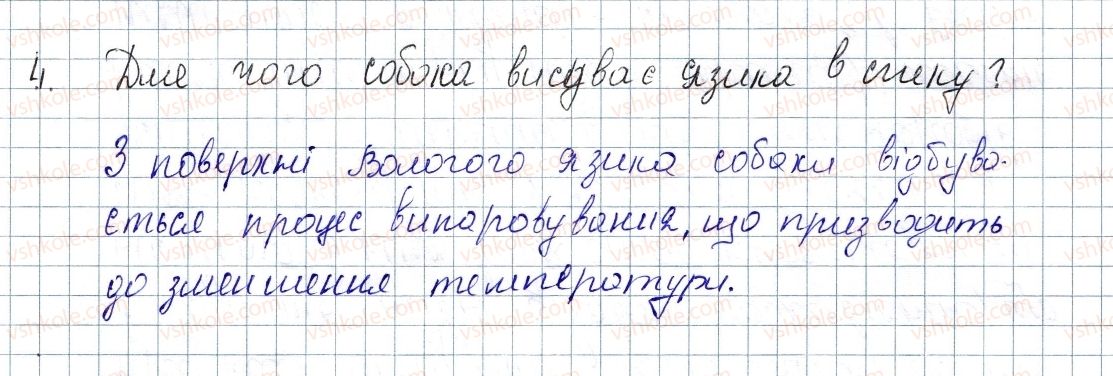 4. Для чого собака висуває язика в спеку?
З поверхні вологого язика собаки відбува-
ється процес випаровування, що призводить
до зменшення температури.